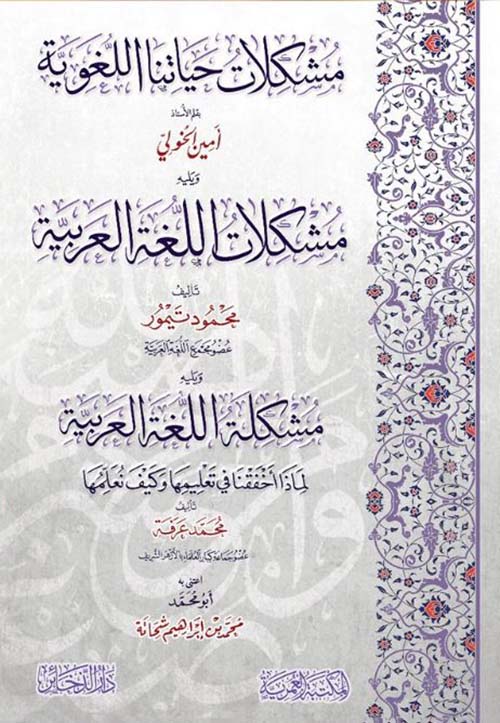 مشكلات حياتنا اللغوية
بقلم الأستاذ
أمين الخولي
ويليه
مشكلات اللغة العربية
تأليف
محمود تيمور
عضو مجمع اللغة العربية
ويليه
مشكلة اللغة العربية
لماذا أخفقنا في تعليمها وكيف نعلمها
تأليف
محمد عرفة
عضو جماعة كبار العلماء بالأزهر الشريف
اعتنى به
أبو محمد
محمد بن إبراهيم شحاتة
المكتبة العمرية
دار الذخائر